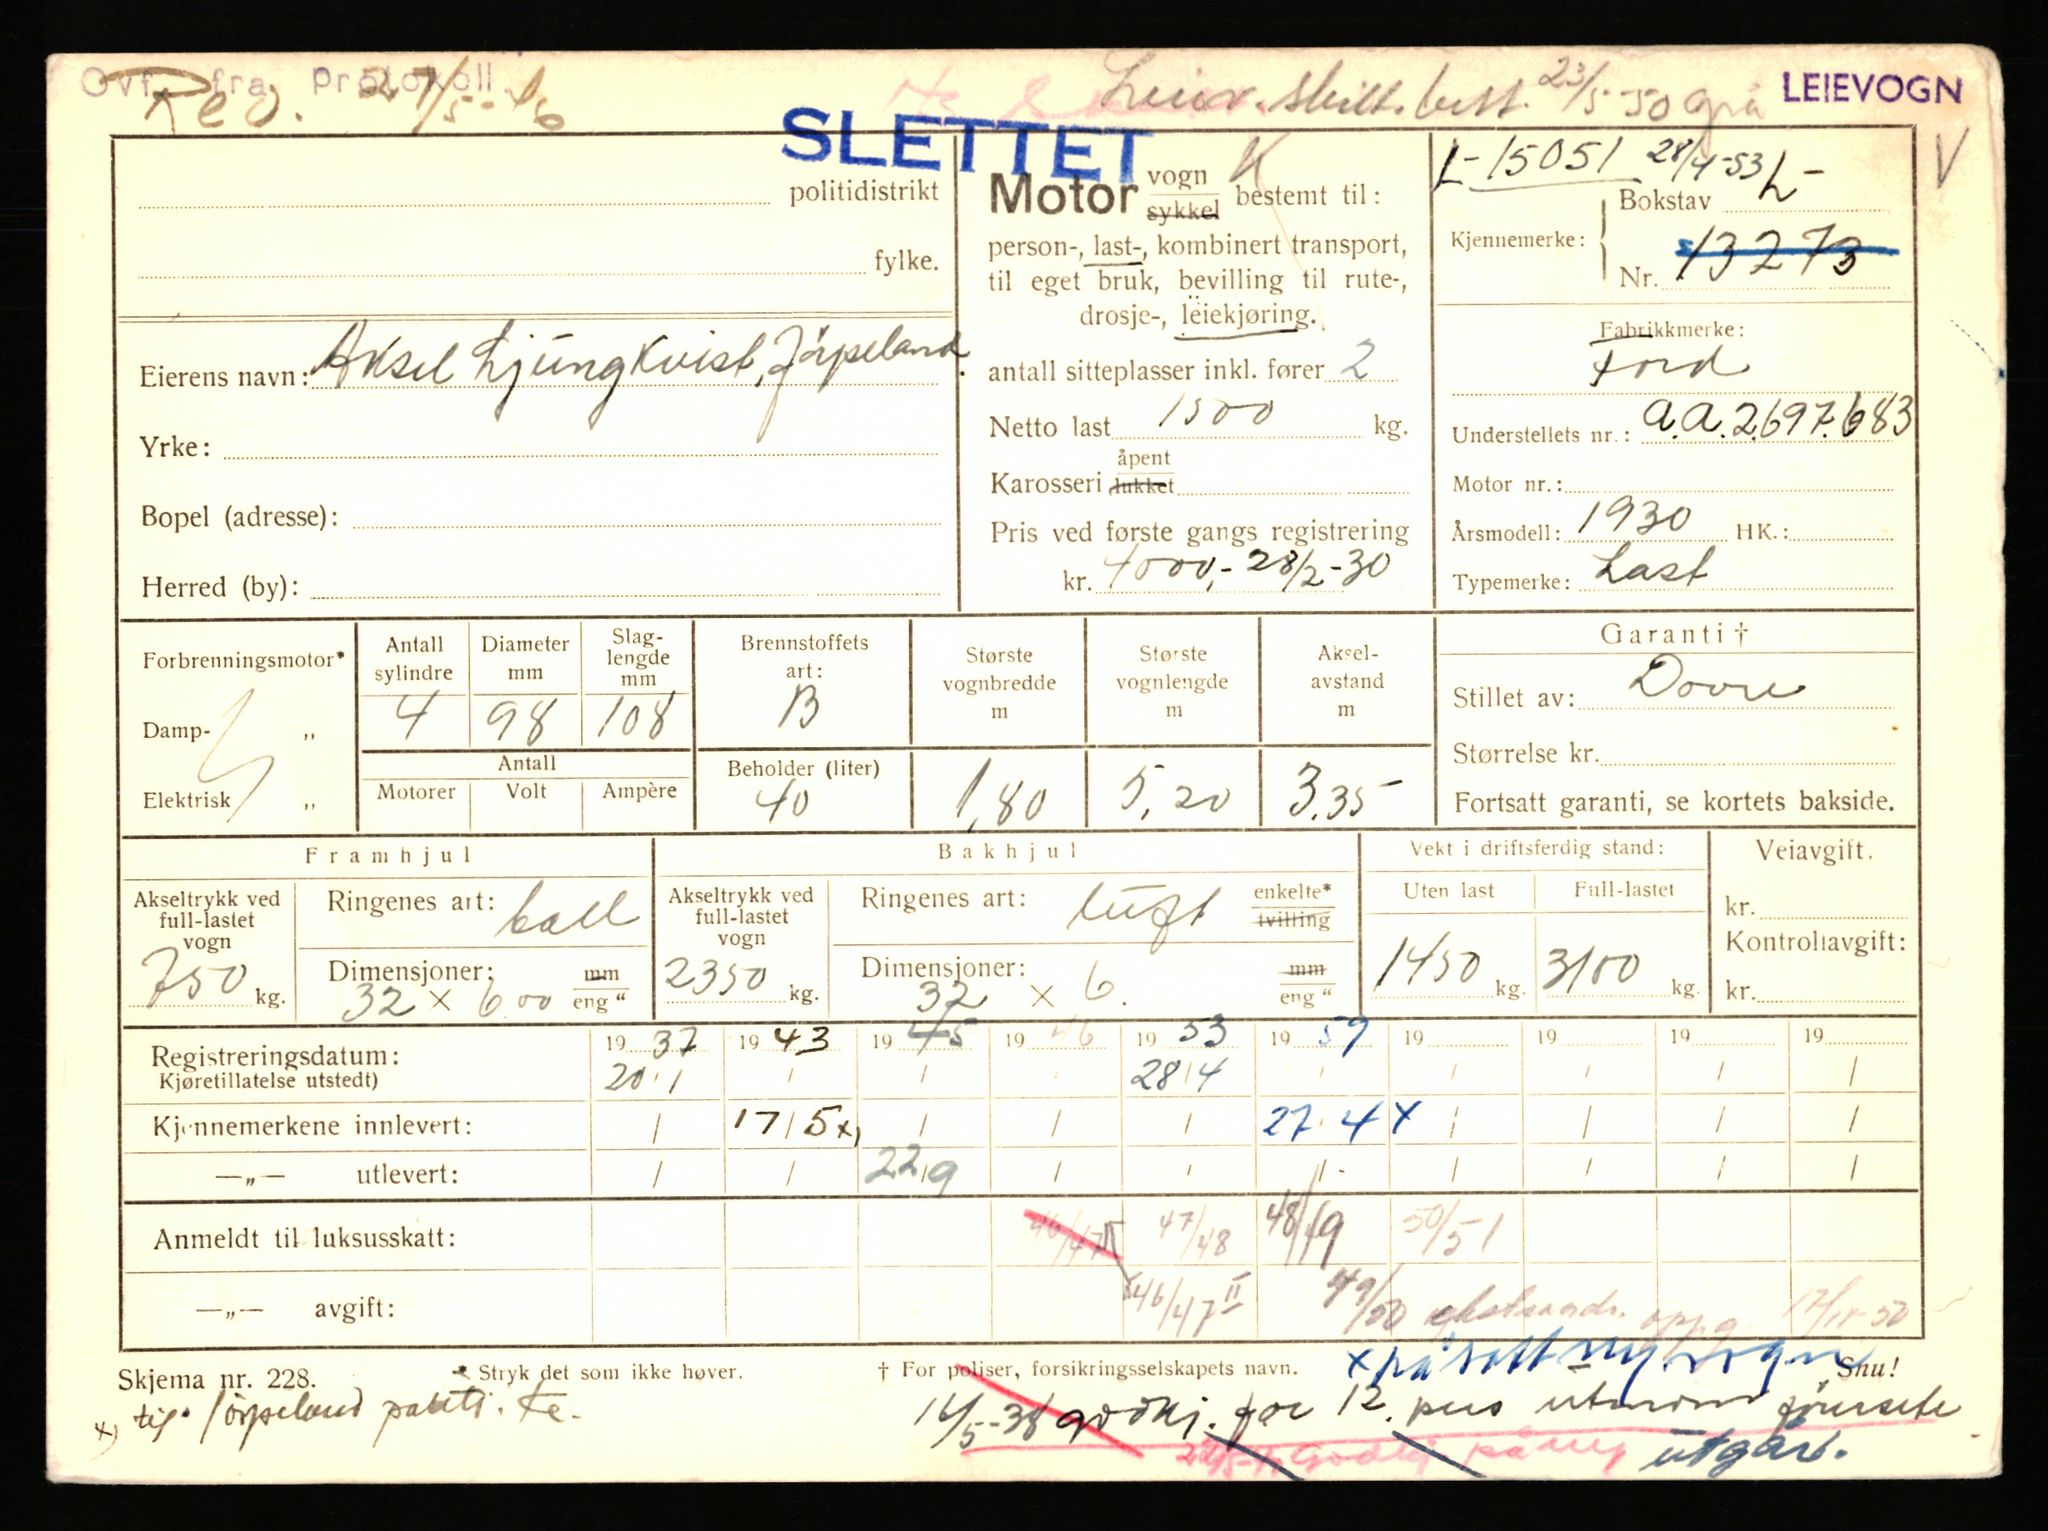 Ovf. fra Protokoll
Reg. 27/5-46
Leiev. skilt. best. 23/5-50 grå
LEIEVOGN
SLETTET
politidistrikt
fylke.
Eierens navn: Aksel Ljungkvist, Jörpeland.
Yrke:
Bopel (adresse):
Herred (by):
Motor vogn sykkel bestemt til:
person-, last-, kombinert transport,
til eget bruk, bevilling til rute-,
drosje-, leiekjøring.
antall sitteplasser inkl. fører 2
Netto last 1500 kg.
Karosseri åpent lukket
Pris ved første gangs registrering
kr. 4000,- 28/2-30
L-15051 28/4-53 L-
V
Bokstav L-
Kjennemerke:
Nr. 13273
Fabrikkmerke:
Ford
Understellets nr.: a.a.2.697.683
Motor nr.:
Årsmodell: 1930 HK.:
Typemerke: Last
Forbrenningsmotor*
Damp- „
Elektrisk „
Antall sylindre
4
Diameter mm
98
Slaglengde mm
108
Antall
Motorer Volt Ampère
Brennstoffets art:
B
Beholder (liter)
40
Største vognbredde m
1,80
Største vognlengde m
5,20
Aksel-avstand m
3.35
Garanti †
Stillet av: Dovre
Størrelse kr.
Fortsatt garanti, se kortets bakside.
Framhjul
Akseltrykk ved full-lastet vogn
750 kg.
Ringenes art: ball
Dimensjoner: mm
32 × 6.00 eng "
Bakhjul
Akseltrykk ved full-lastet vogn
2350 kg.
Ringenes art: luft enkelte* tvilling
Dimensjoner: mm
32 × 6. eng "
Vekt i driftsferdig stand:
Uten last Full-lastet
1450 kg. 3100 kg.
Veiavgift.
kr.
Kontrollavgift:
kr.
19 37 19 43 19 45 19 46 19 53 19 59 19 19 19 19
Registreringsdatum:
Kjøretillatelse utstedt) 20/1 28/4
Kjennemerkene innlevert: 17/5 x) 27/4 x
—„— utlevert: 22/9
Anmeldt til luksusskatt: 46/47 II 47/48 48/49 50/51
—„— avgift: 46/47 II 49/50
Skjema nr. 228.
* Stryk det som ikke høver.
† For poliser, forsikringsselskapets navn.
x påsatt ny vogn
Snu!
x) til Jørpeland
godkj. for 12 pers utenom förersete
godkj på ny utgår.